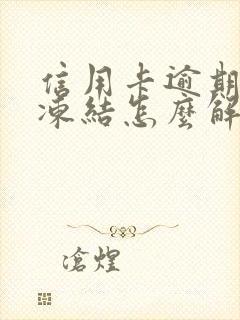 信用卡逾期
凍結怎麼解
滄煌